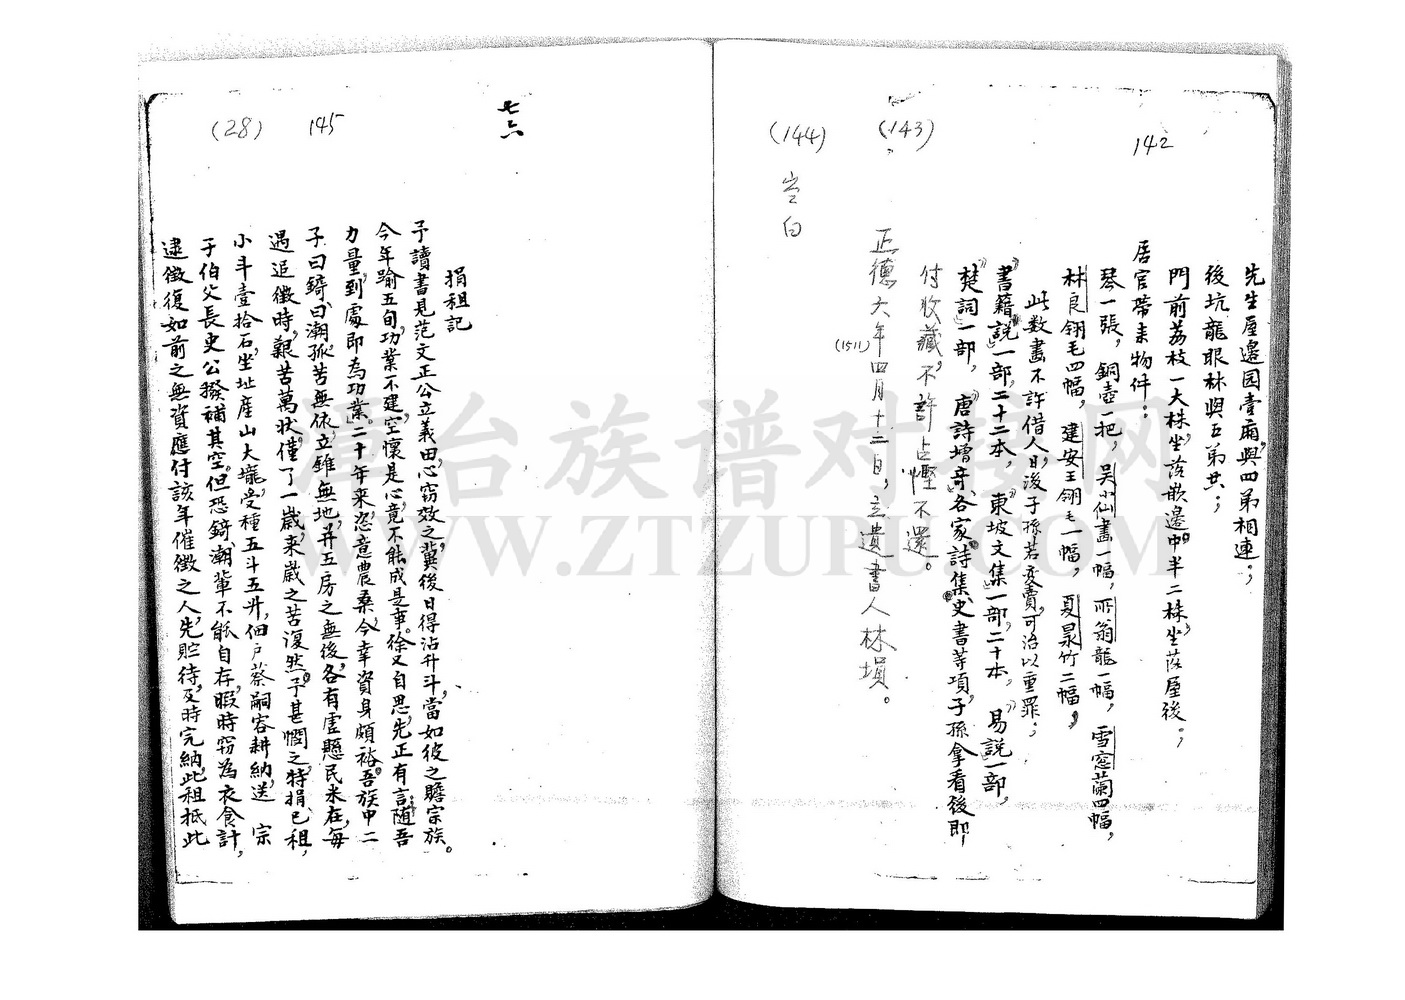 142
先生屋邊园壹廂,與四弟相連。;
後坑龍眼林與五弟共;
門前荔枝一大株,坐落嵌邊中半二株,坐落屋後。;
居官帶来物件:
琴一張,銅壺一把,吴小仙畫一幅,所翁龍一幅,雪窓蘭四幅,
林良翎毛四幅,建安王翎毛一幅,夏泉竹二幅,
此数畫不許借人,日後子孫若变賣,可治以重罪;
書籍說一部,二十二本,東坡文集一部,二十本,易說一部,
楚詞一部,唐詩增奇,各家詩集,史書等項,子孫拿看後即
付收藏,不許占慳不還。
(143)
正德大年四月十二日,立遺書人林塤。
(1511)
(144)
空白
七六
145
(28)
捐租記
予讀書見范文正公立義田心竊效之,冀後日得沾升斗,當如彼之贍宗族。
今年踰五旬,功業不建,空懷是心,竟不能成是事。徐又自思,先正有言,随吾
力量,到處即為功業。二十年来,恣意農桑,今幸資身頗裕。吾族中二
子曰錡,曰潮,孤苦無依,立錐無地,并五房之無後,各有虛懸民米在,每
遇追徵時,艱苦萬状,僅了一歲,来歲之苦復然。予甚憫之,特捐己租,
小斗壹拾石,坐址産山大壠,受種五斗五升,佃户蔡嗣容耕納,送 宗
于伯父長史公撥補其空。但恐錡、潮輩不能自存,暇時窃為衣食計,
逮徵復如前之無資應付該年催徵之人,先貯待,及時完納,此租抵此
潭台族谱对接网
WWW.ZTZUPU.COM